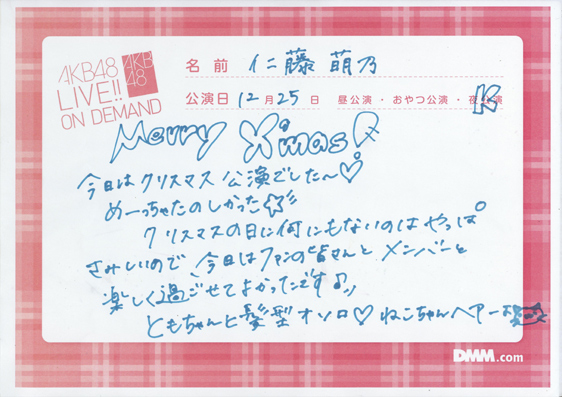 AKB48
LIVE!!
ON DEMAND
AKB
48
名前 仁藤 萌乃
公演日 12月25日 昼公演・おやつ公演・夜公演
K
Merry X'mas
今日はクリスマス公演でした〜♡
めーっちゃたのしかった☆彡
クリスマスの日に何にもないのはやっぱ
さみしいので、今日はファンの皆さんとメンバーと
楽しく過ごせてよかったです♪
ともちゃんと髪型オソロ♡ ねこちゃんヘアー
DMM.com